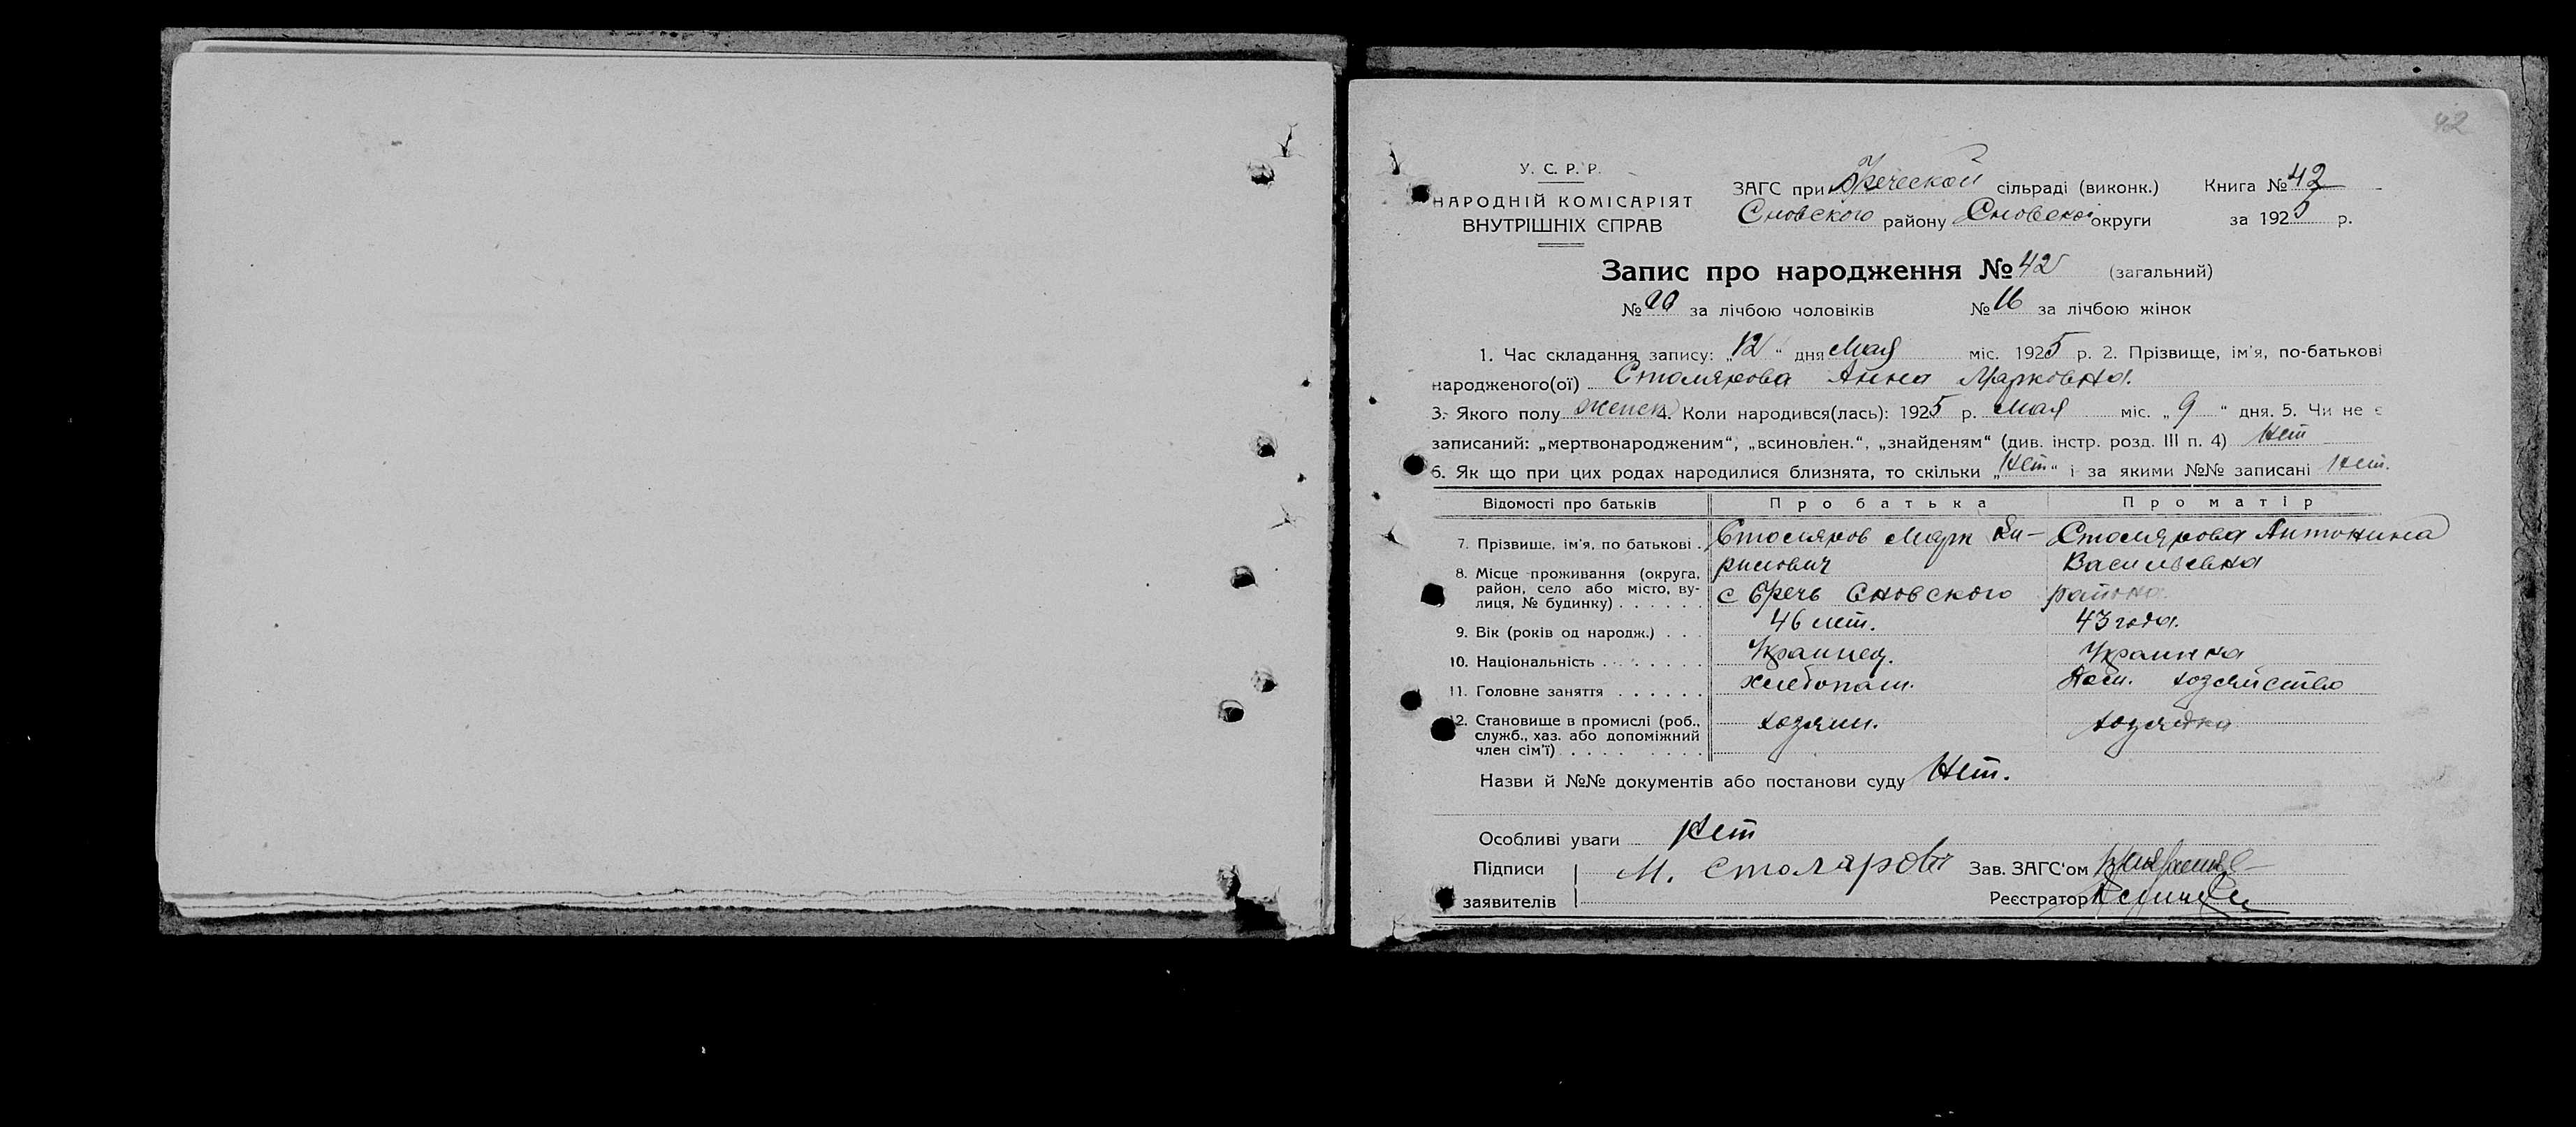 42
У. С. Р. Р.
НАРОДНІЙ КОМІСАРІЯТ
ВНУТРІШНІХ СПРАВ
ЗАГС при сільраді (виконк.) Книга № 42
Сновского району Сновской округи за 1925 р.
Запис про народження № 42 (загальний)
№ за лічбою чоловіків № 16 за лічбою жінок
1. Час складання запису: „12“ дня Мая міс. 1925 р. 2. Прізвище, ім'я, по-батькові
народженого(ої) Столярова Анна Марковна.
3. Якого полу женск 4. Коли народився(лась): 1925 р. Мая міс. „9“ дня. 5. Чи не є
записаний: „мертвонародженим“, „всиновлен.“, „знайденям“ (див. інстр. розд. III п. 4) Нет
6. Як що при цих родах народилися близнята, то скільки „Нет“ і за якими №№ записані Нет.
Відомості про батьків Про батька Про матір
7. Прізвище, ім'я, по батькові . Столяров Марк Ки- Столярова Антонина
рилович Васильевна
8. Місце проживання (округа,
район, село або місто, ву-
лиця, № будинку) . . . . . . с Сновского района
9. Вік (років од народж.) . . . 46 лет. 43 года.
10. Національність . . . . . . . Украинец. Украинка
11. Головне заняття . . . . . . хлебопаш. Дом. хозяйство
12. Становище в промислі (роб.,
служб., хаз. або допоміжний
член сім'ї) . . . . . . . . . хозяин. хозяйка
Назви й №№ документів або постанови суду Нет.
Особливі уваги Нет
Підписи М. Столяров Зав. ЗАГС'ом
заявителів Реєстратор